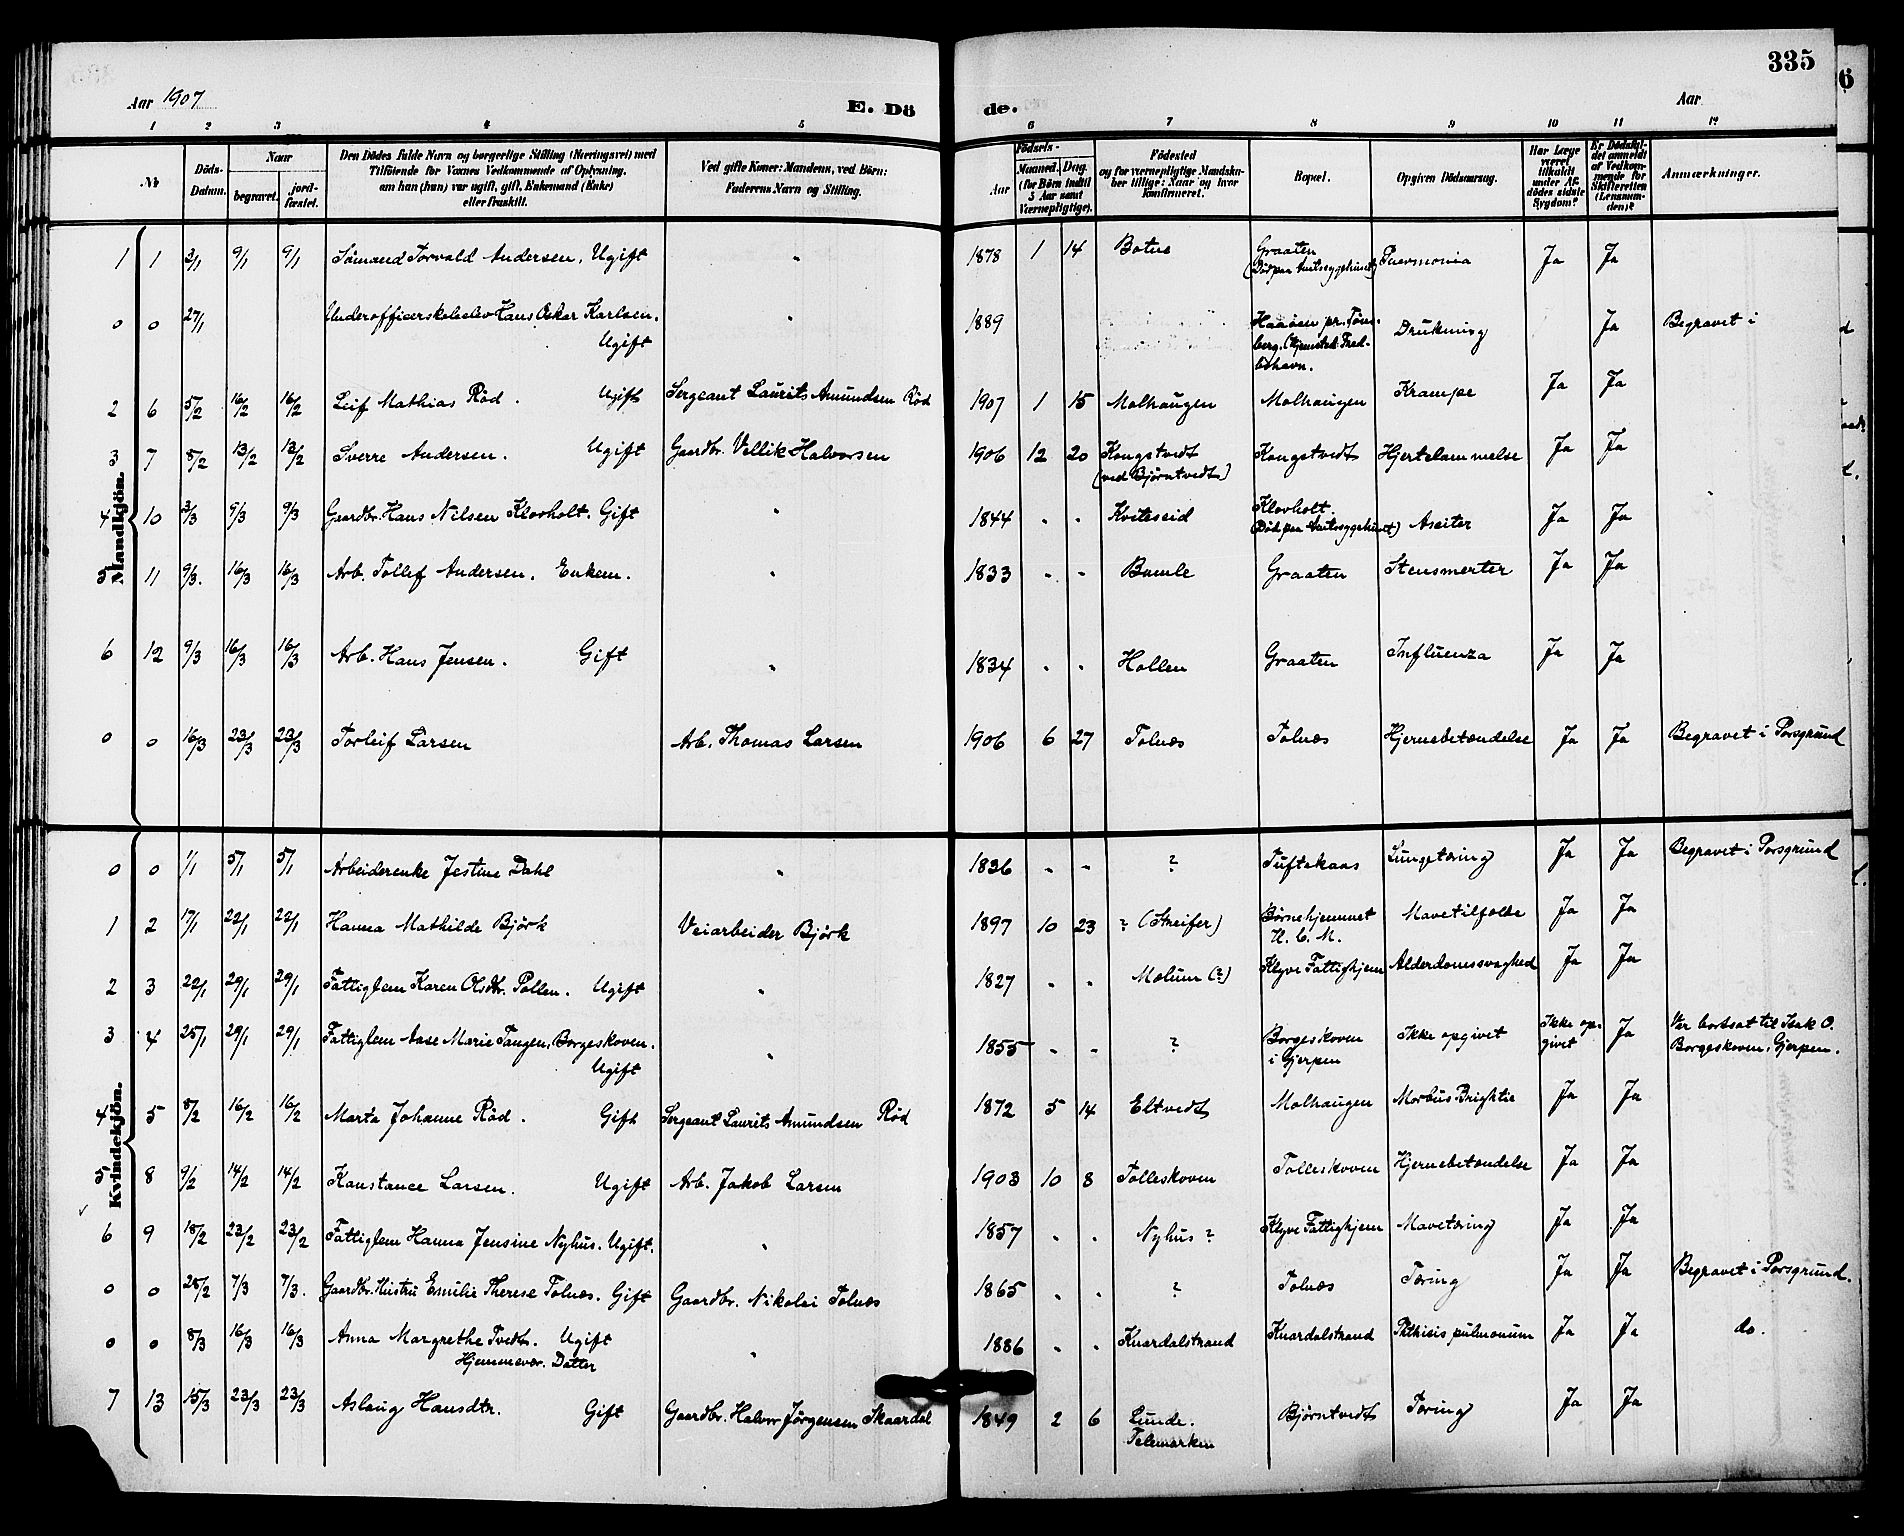 335
Aar 1907
E. Dö de.
Aar
1 2 3 4 5 6 7 8 9 10 11 12
№
Döds-Datum.
Naar begravet. jordfæstet.
Den Dödes fulde Navn og borgerlige Stilling (Næringsvei) med Tilföiende for Voxnes Vedkommende af Oplysning, om han (hun) var ugift, gift, Enkemand (Enke) eller fraskilt.
Ved gifte Koner: Mandens, ved Börn: Faderens Navn og Stilling.
Födsels- Aar Maaned. Dag. (for Börn indtil 5 Aar samt Værnepligtige).
Födested og for værnepligtige Mandskaber tillige: Naar og hvor konfirmeret.
Bopæl.
Opgiven Dödsaarsag.
Har Læge været tilkaldt under Afdödes sidste Sygdom?
Er Dödsfaldet anmeldt af Vedkommende for Skifteretten (Lensmanden)?
Anmærkninger.
Mandkjön.
1 1 3/1 9/1 9/1 Sömand Torvald Andersen. Ugift " 1878 1 14 Botne Graaten (Död paa Amtssygehuset) Pnevmonia Ja Ja
0 0 27/1 Underofficerskoleelev Hans Oskar Karlsen. Ugift " 1889 Haaöen pr. Tönsberg. (Hjemsted: Fredshavn. Drukning Ja Begravet i
2 6 5/2 16/2 16/2 Leif Mathias Röd. Ugift Sergeant Laurits Amundsen Röd 1907 1 15 Molhaugen Molhaugen Krampe Ja Ja
3 7 8/2 13/2 13/2 Sverre Andersen. Ugift Gaardbr. Vellik Halvorsen 1906 12 20 Kongstvedt (ved Bjørntvedt) Kongstvedt Hjertelammelse Ja Ja
4 10 3/3 9/3 9/3 Gaardbr. Hans Nilsen Klovholt. Gift " 1844 " " Kviteseid Klovholt. (Död paa Amtssygehuset) Asciter Ja Ja
5 11 9/3. 16/3 16/3 Arb. Tollef Andersen. Enkem. " 1833 " " Bamle Graaten Stensmerter Ja Ja
6 12 9/3 16/3 16/3 Arb. Hans Jensen. Gift " 1834 " " Hollen Graaten Influenza Ja Ja
0 0 16/3 23/3 23/3 Torleif Larsen Arb. Thomas Larsen 1906 6 27 Tolnæs Tolnæs Hjernebetændelse Ja Ja Begravet i Porsgrund
Kvindekjön.
0 0 1/1 5/1 5/1 Arbeiderenke Jestine Dahl " 1836 " " ? Tuftekaas Lungetæring Ja Ja Begravet i Porsgrund
1 2 17/1 22/1 22/1 Hanna Mathilde Björk Veiarbeider Björk 1897 10 23 ? (Streifer) Börnehjemmet K. C. M. Mavetilfælde Ja Ja
2 3 22/1 29/1 29/1 Fattiglem Karen Olsdtr. Pollen. Ugift " 1827 " " Mælum (?) Klyve Fattighjem Alderdomssvaghed Ja Ja
3 4 25/1 29/1 29/1 Fattiglem Aase Marie Tangen, Borgeskoven. Ugift " 1855 " " ? Borgeskoven i Gjerpen Ikke opgivet Ikke opgivet Ja Var bortsat til Isak O. Borgeskoven, Gjerpen.
4 5 8/2 16/2 16/2 Marta Johanne Röd. Gift Sergeant Laurits Amundsen Röd 1872 5 14 Eltvedt Molhaugen Morbus Brightie Ja Ja
5 8 9/2 14/2 14/2 Konstance Larsen. Ugift Arb. Jakob Larsen 1903 10 8 Tolleskoven Tolleskoven Hjernebetændelse Ja Ja
6 9 18/2 23/2 23/2 Fattiglem Hanna Jensine Nyhus. Ugift. " 1857 " " Nyhus ? Klyve Fattighjem Mavetæring Ja Ja
0 0 28/2 7/3 7/3. Gaardbr. Hustru Emilie Therese Tolnæs. Gift Gaardbr. Nikolai Tolnæs 1865 " " ? Tolnæs Tæring Ja Ja Begravet i Porsgrund.
0 0 8/3 16/3 16/3 Anna Margrethe Tvedt. Ugift Hjemmevær. Datter " 1886 " " Knardalstrand Knardalstrand Phthisis pulmonum Ja Ja do.
7 13 15/3 23/3 23/3 Aslaug Hansdtr. Gift Gaardbr. Halvor Jørgensen Skaardal 1849 2 6 Lunde. Telemarken Bjørntvedt Tæring Ja Ja